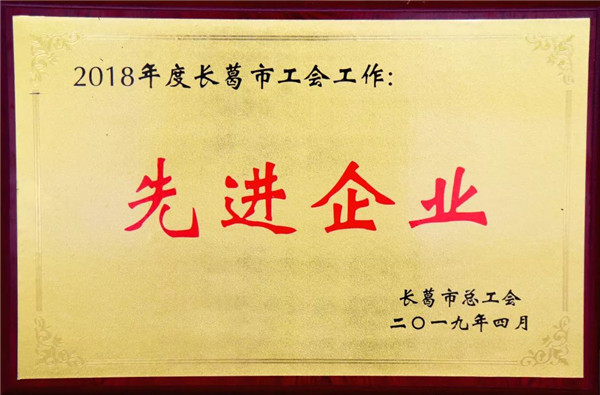 2018年度长葛市工会工作:
先进企业
长葛市总工会
二〇一九年四月